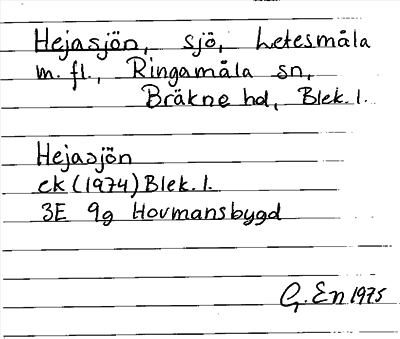 Hejasjön, sjö, Letesmåla
m. fl., Ringamåla sn,
Bräkne hd, Blek. l.
Hejasjön
ek (1974) Blek. l.
3E 9g Hovmansbygd
G. En 1975